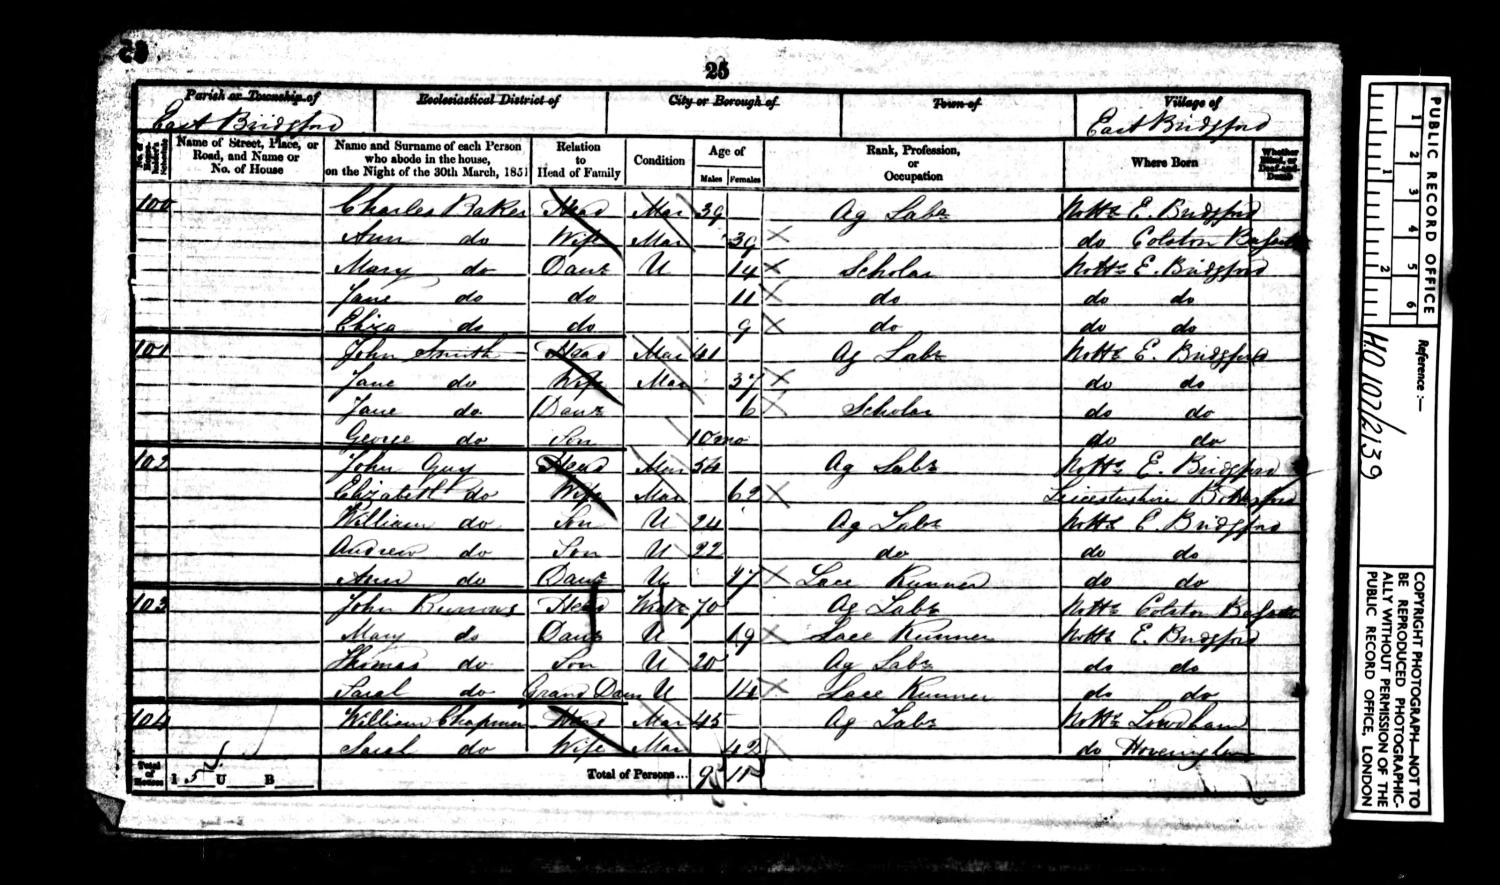 25
Parish or Township of
East Bridgford
Ecclesiastical District of
City or Borough of
Town of
Village of
East Bridgford
Name of Street, Place, or Road, and Name or No. of House
Name and Surname of each Person who abode in the house, on the Night of the 30th March, 1851
Relation to Head of Family
Condition
Age of
Males Females
Rank, Profession, or Occupation
Where Born
Whether Blind, or Deaf-and-Dumb
100 Charles Baker Head Mar 39 Ag Labr Notts E. Bridgford
Ann do Wife Mar 39 do Colston Bassett
Mary do Daur U 14 Scholar Notts E. Bridgford
Jane do do 11 do do do
Eliza do do 9 do do do
101 John Smith Head Mar 41 Ag Labr Notts E. Bridgford
Jane do Wife Mar 37 do do
Jane do Daur 6 Scholar do do
George do Son 10 mo do do
102 John Guy Head Mar 54 Ag Labr Notts E. Bridgford
Elizabeth do Wife Mar 62 Leicestershire Bottesford
William do Son U 24 Ag Labr Notts E. Bridgford
Andrew do Son U 22 do do do
Ann do Daur U 17 Lace Runner do do
103 John Burrows Head Widr 70 Ag Labr Notts Colston Bassett
Mary do Daur U 19 Lace Runner Notts E. Bridgford
Thomas do Son U 20 Ag Labr do do
Sarah do Grand Daur U 14 Lace Runner do do
104 William Chapman Head Mar 45 Ag Labr Notts Lowdham
Sarah do Wife Mar 42 do Hoveringham
Total of Houses
I 5 U B
Total of Persons... 9 11
PUBLIC RECORD OFFICE
1 2 3 4 5 6
1 2
Reference :—
HO 107/2139
COPYRIGHT PHOTOGRAPH—NOT TO
BE REPRODUCED PHOTOGRAPHIC-
ALLY WITHOUT PERMISSION OF THE
PUBLIC RECORD OFFICE, LONDON